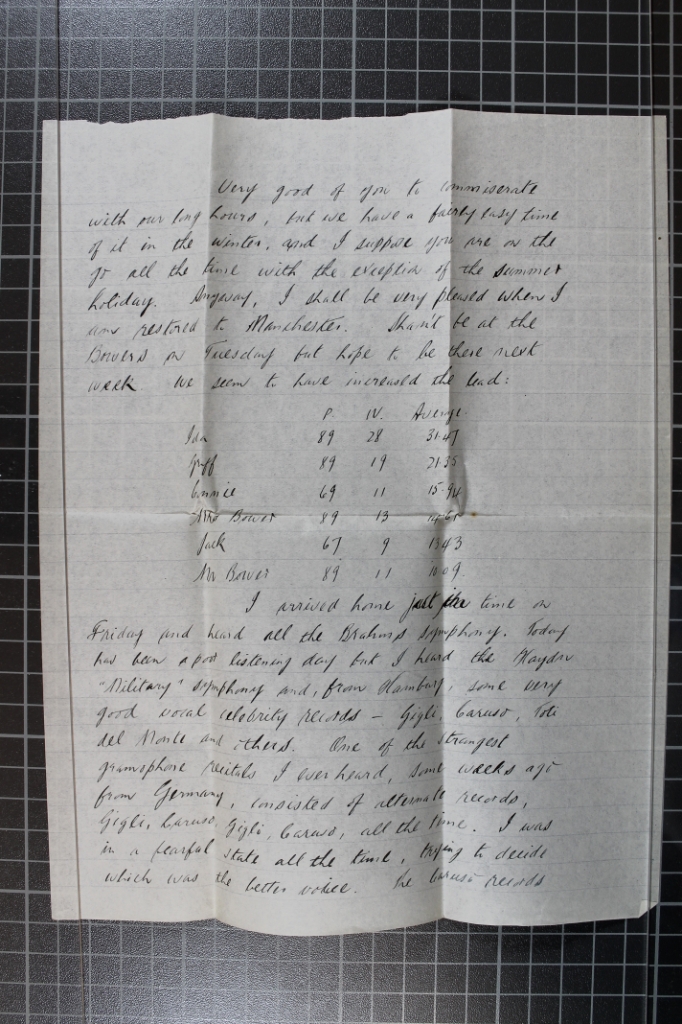 Very good of you to commiserate
with our long hours, but we have a fairly easy time
of it in the winter, and I suppose you are on the
go all the time with the exception of the summer
holiday. Anyway, I shall be very pleased when I
am restored to Manchester. Shan't be at the
Bowers on Tuesday but hope to be there next
week. We seem to have increased the lead:
P. W. Average.
Ida 89 28 31.47
Griff 89 19 21.35
Connie 69 11 15.94
Mrs Bower 89 13
Jack 67 9 13.43
Mr Bower 89 11
I arrived home just in time on
Friday and heard all the Brahms symphony. Today
has been a poor listening day but I heard the Haydn
"Military" symphony and, from Hamburg, some very
good vocal celebrity records – Gigli, Caruso, Toti
del Monte and others. One of the strangest
gramophone recitals I ever heard, some weeks ago
from Germany, consisted of alternate records,
Gigli, Caruso, Gigli, Caruso, all the time. I was
in a fearful state all the time, trying to decide
which was the better voice. The Caruso records